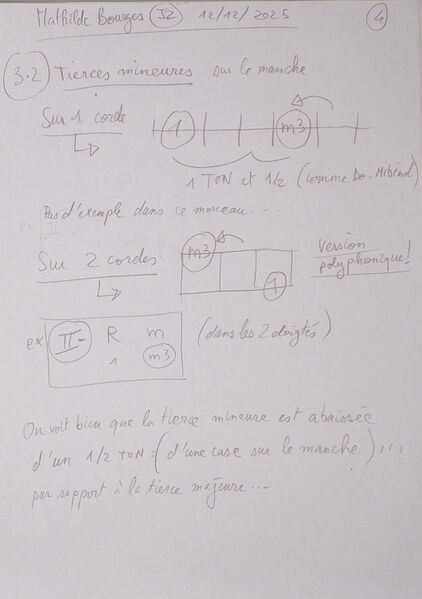 Mathilde Bourges J2 12/12/2025 4
3.2 Tierces mineures sur le manche
Sur 1 corde
1 m3
1 TON et 1/2 (comme Do-Mibémol)
Pas d'exemple dans ce morceau...
Sur 2 cordes
m3
1
Version
polyphonique!
ex II- R m (dans les 2 doigtés)
1 m3
On voit bien que la tierce mineure est abaissée
d'un 1/2 TON = (d'une case sur le manche)...
par rapport à la tierce majeure...